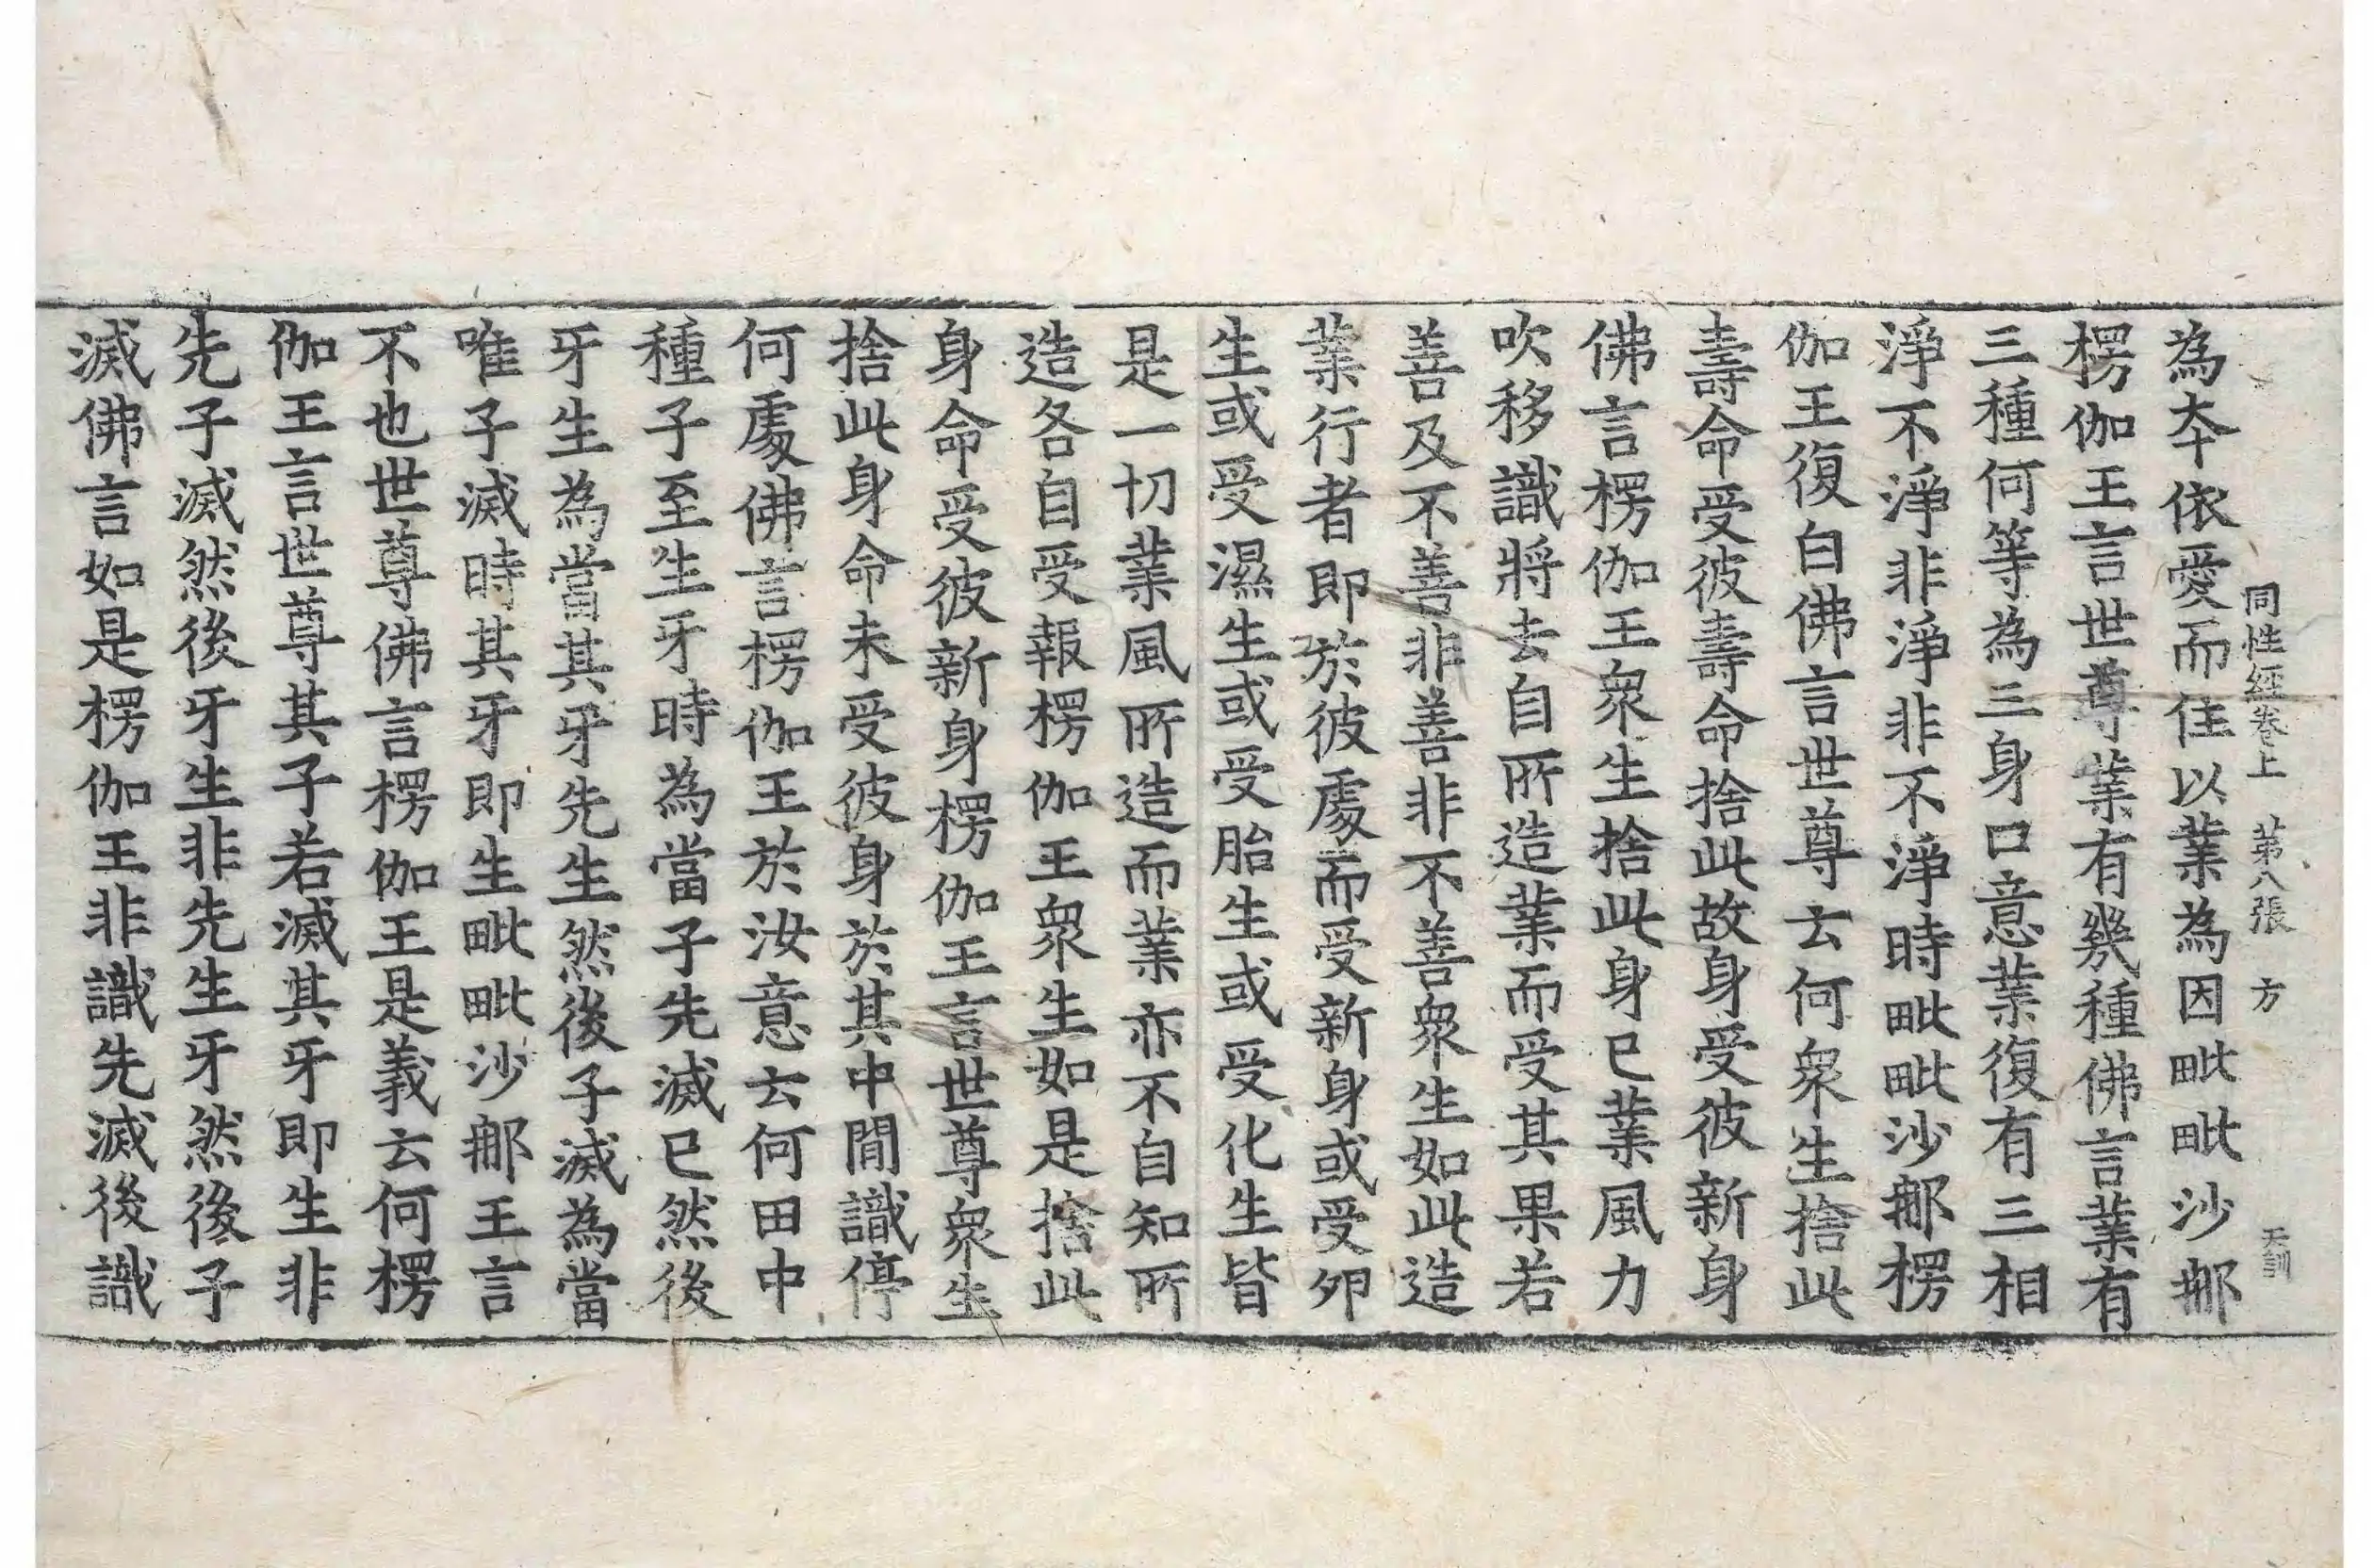 同性經卷上 第八張 方 天訓
為夲依愛而住以業為因毗毗沙郍
楞伽王言世尊業有幾種佛言業有
三種何等為三身口意業復有三相
淨不淨非淨非不淨時毗毗沙郍楞
伽王復白佛言世尊云何衆生捨此
壽命受彼壽命捨此故身受彼新身
佛言楞伽王衆生捨此身已業風力
吹移識將去自所造業而受其果若
善及不善非善非不善衆生如此造
業行者即於彼處而受新身或受卵
生或受濕生或受胎生或受化生皆
是一切業風所造而業亦不自知所
造各自受報楞伽王衆生如是捨此
身命受彼新身楞伽王言世尊衆生
捨此身命未受彼身於其中間識停
何處佛言楞伽王於汝意云何田中
種子至生牙時為當子先滅已然後
牙生為當其牙先生然後子滅為當
唯子滅時其牙即生毗毗沙郍王言
不也世尊佛言楞伽王是義云何楞
伽王言世尊其子若滅其牙即生非
先子滅然後牙生非先生牙然後子
滅佛言如是楞伽王非識先滅後識